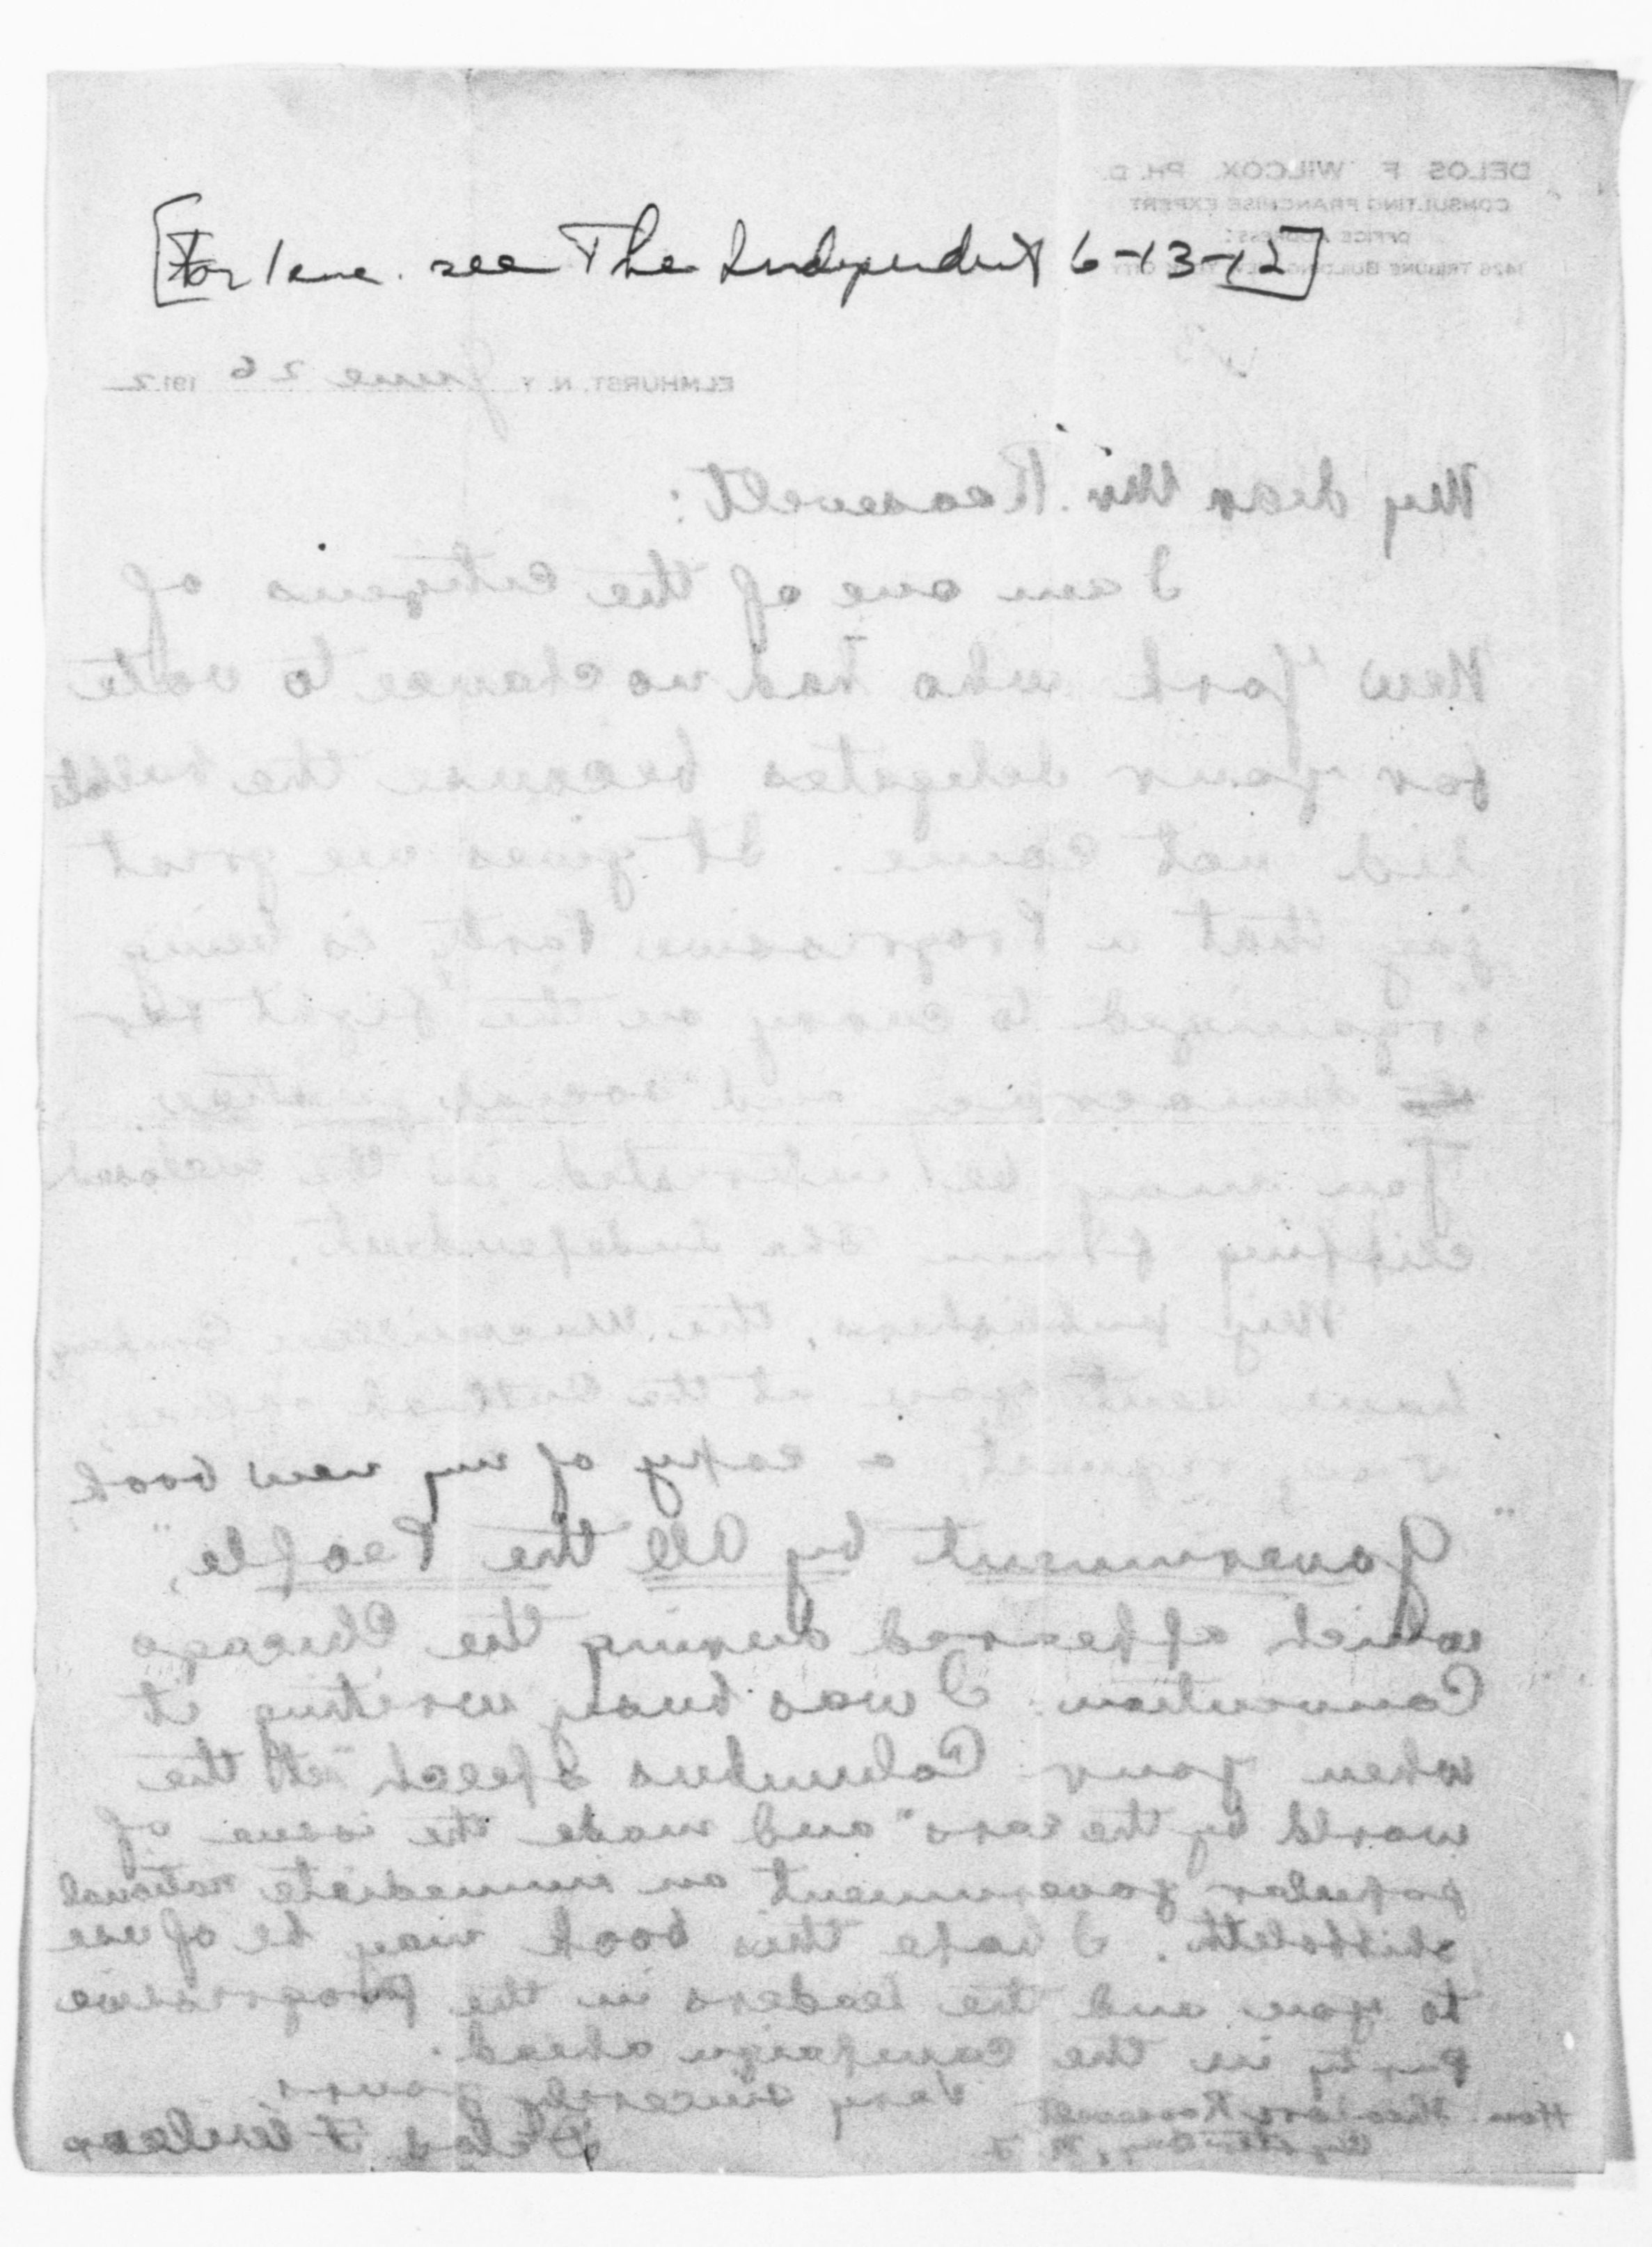 [For 1 enc. see The Independent 6-13-12]
DELOS F. WILCOX, PH. D.
CONSULTING FRANCHISE EXPERT
OFFICE ADDRESS:
1426 TRIBUNE BUILDING, NEW YORK CITY
ELMHURST, N. Y. June 26 1912
My dear Mr. Roosevelt:
I am one of the citizens of
New York who had no chance to vote
for your delegates because the ballots
did not come. It gives me great
joy that a Progressive Party is being
organized to carry on the fight for
democracy and social justice.
You may be interested in the enclosed
clipping from The Independent.
My publishers, the Macmillan Company
have sent you at the Outlook office,
at my request, a copy of my new book
"Government by All the People",
which appeared during the Chicago
Convention. I was busy writing it
when your Columbus speech "set the
world by the ears" and made the issue of
popular government an immediate national
shibboleth. I hope this book may be of use
to you and the leaders in the Progressive
Party in the campaign ahead.
Very sincerely yours
Delos F. Wilcox
Hon. Theodore Roosevelt
Oyster Bay, N. Y.